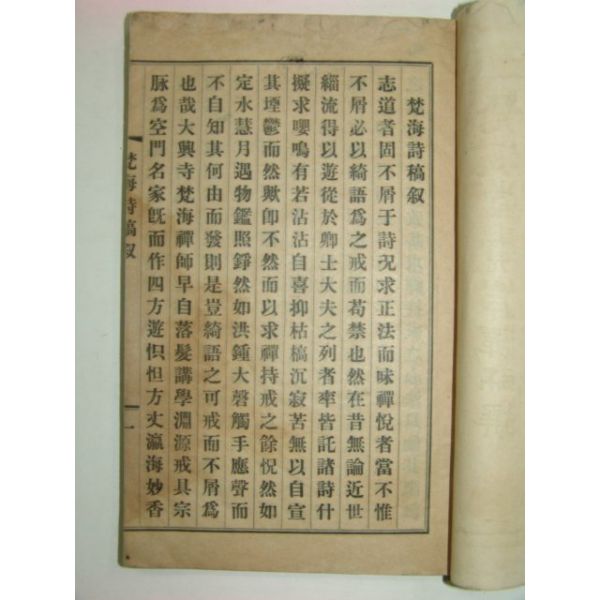 梵海詩稿叙
志道者固不屑于詩況求正法而味禪悅者當不惟
不屑必以綺語爲之戒而苟禁也然在昔無論近世
緇流得以遊從於卿士大夫之列者率皆託諸詩什
擬求嚶鳴有若沾沾自喜抑枯槁沉寂苦無以自宣
其堙鬱而然歟卽不然而以求禪持戒之餘怳然如
定水慧月遇物鑑照錚然如洪鍾大磬觸手應聲而
不自知其何由而發則是豈綺語之可戒而不屑爲
也哉大興寺梵海禪師早自落髮講學淵源戒具宗
脉爲空門名家旣而作四方遊怾怛方丈瀛海妙香
梵海詩稿叙
一